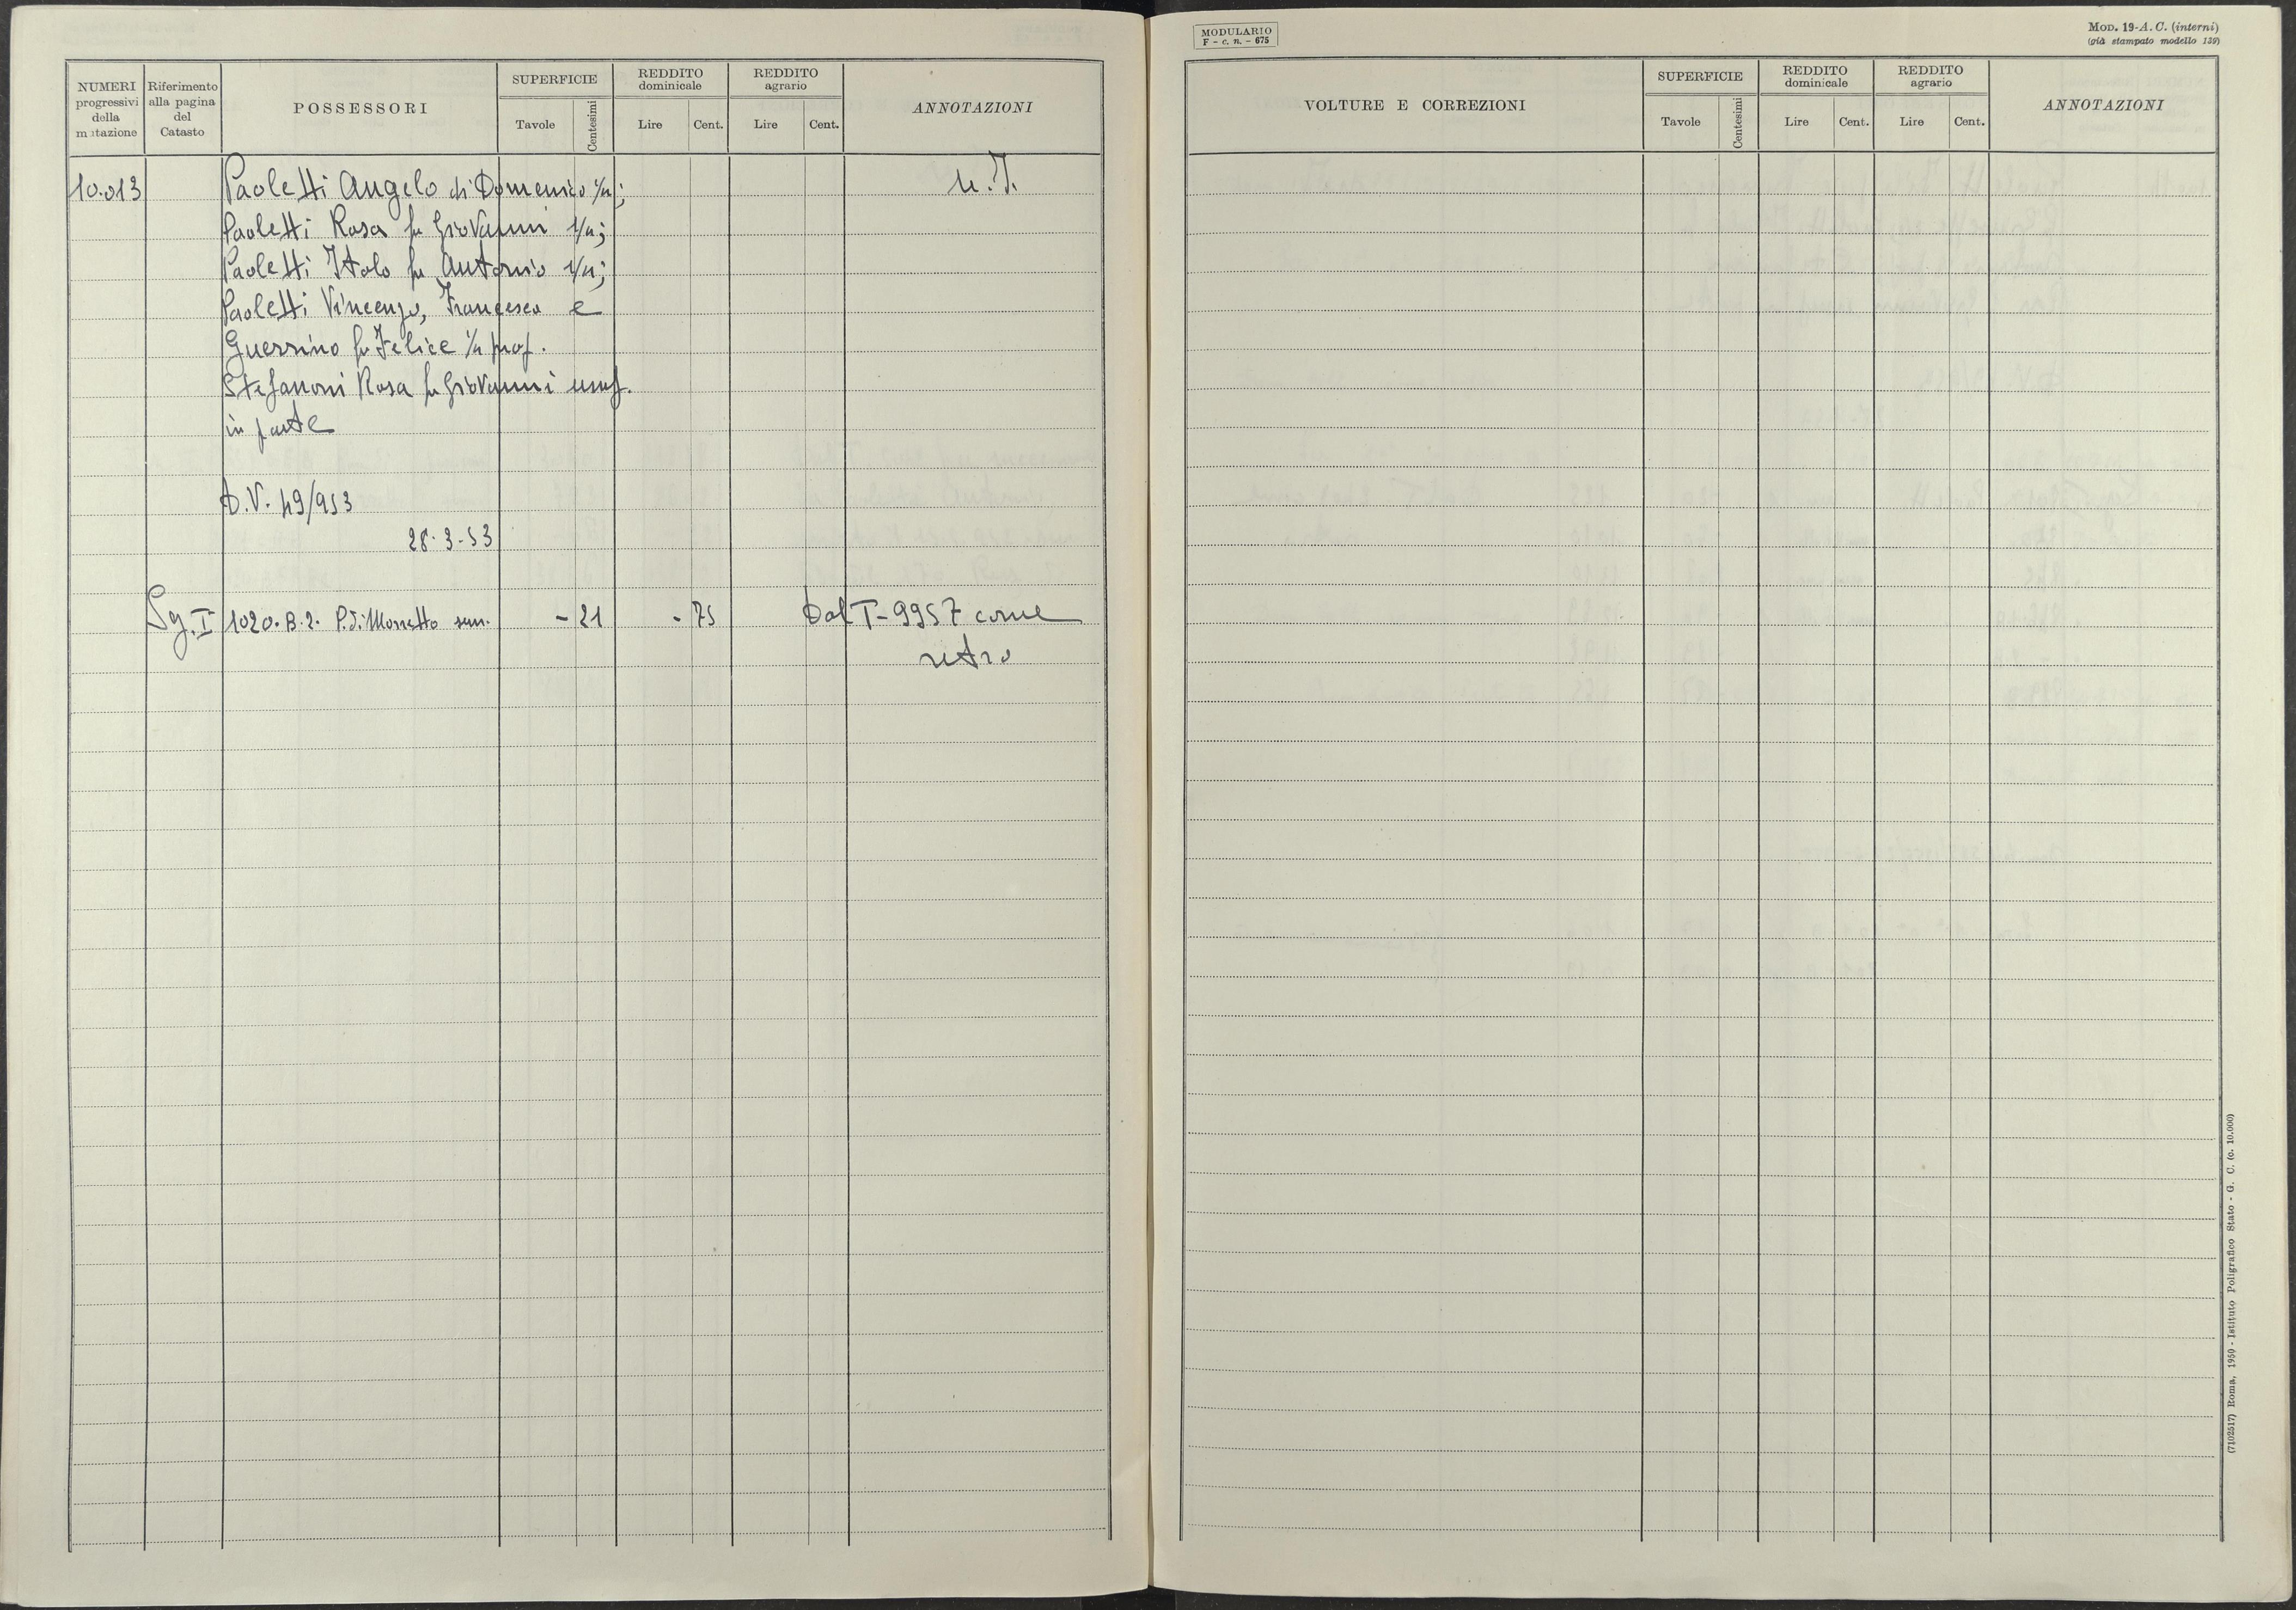 NUMERI progressivi della mutazione
Riferimento alla pagina del Catasto
POSSESSORI
SUPERFICIE
Tavole
Centesimi
REDDITO dominicale
Lire
Cent.
REDDITO agrario
Lire
Cent.
ANNOTAZIONI
10.013
Paoletti Angelo di Domenico 1/4;
Paoletti Rosa fu Giovanni 1/4;
Paoletti Italo fu Antonio 1/4;
Paoletti Vincenzo, Francesco e
Guerrino fu Felice 1/4 prop.
Stefanoni Rosa fu Giovanni usuf.
in parte
D.V. 49/953
28-3-53
Sg. I 1020. B. 2. P.di Morretto sem. - 21 - 75 Dal T-9957 come
retro
MODULARIO
F - c. n. - 675
MOD. 19-A. C. (interni)
(già stampato modello 139)
VOLTURE E CORREZIONI
SUPERFICIE
Tavole
Centesimi
REDDITO dominicale
Lire
Cent.
REDDITO agrario
Lire
Cent.
ANNOTAZIONI
(7102517) Roma, 1950 - Istituto Poligrafico Stato - G. C. (c. 10.000)